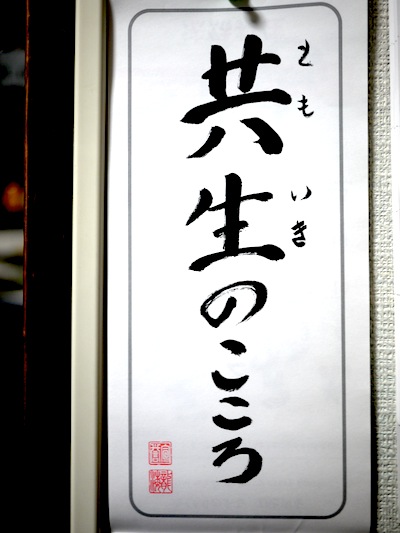 共生のこころ
ともいき